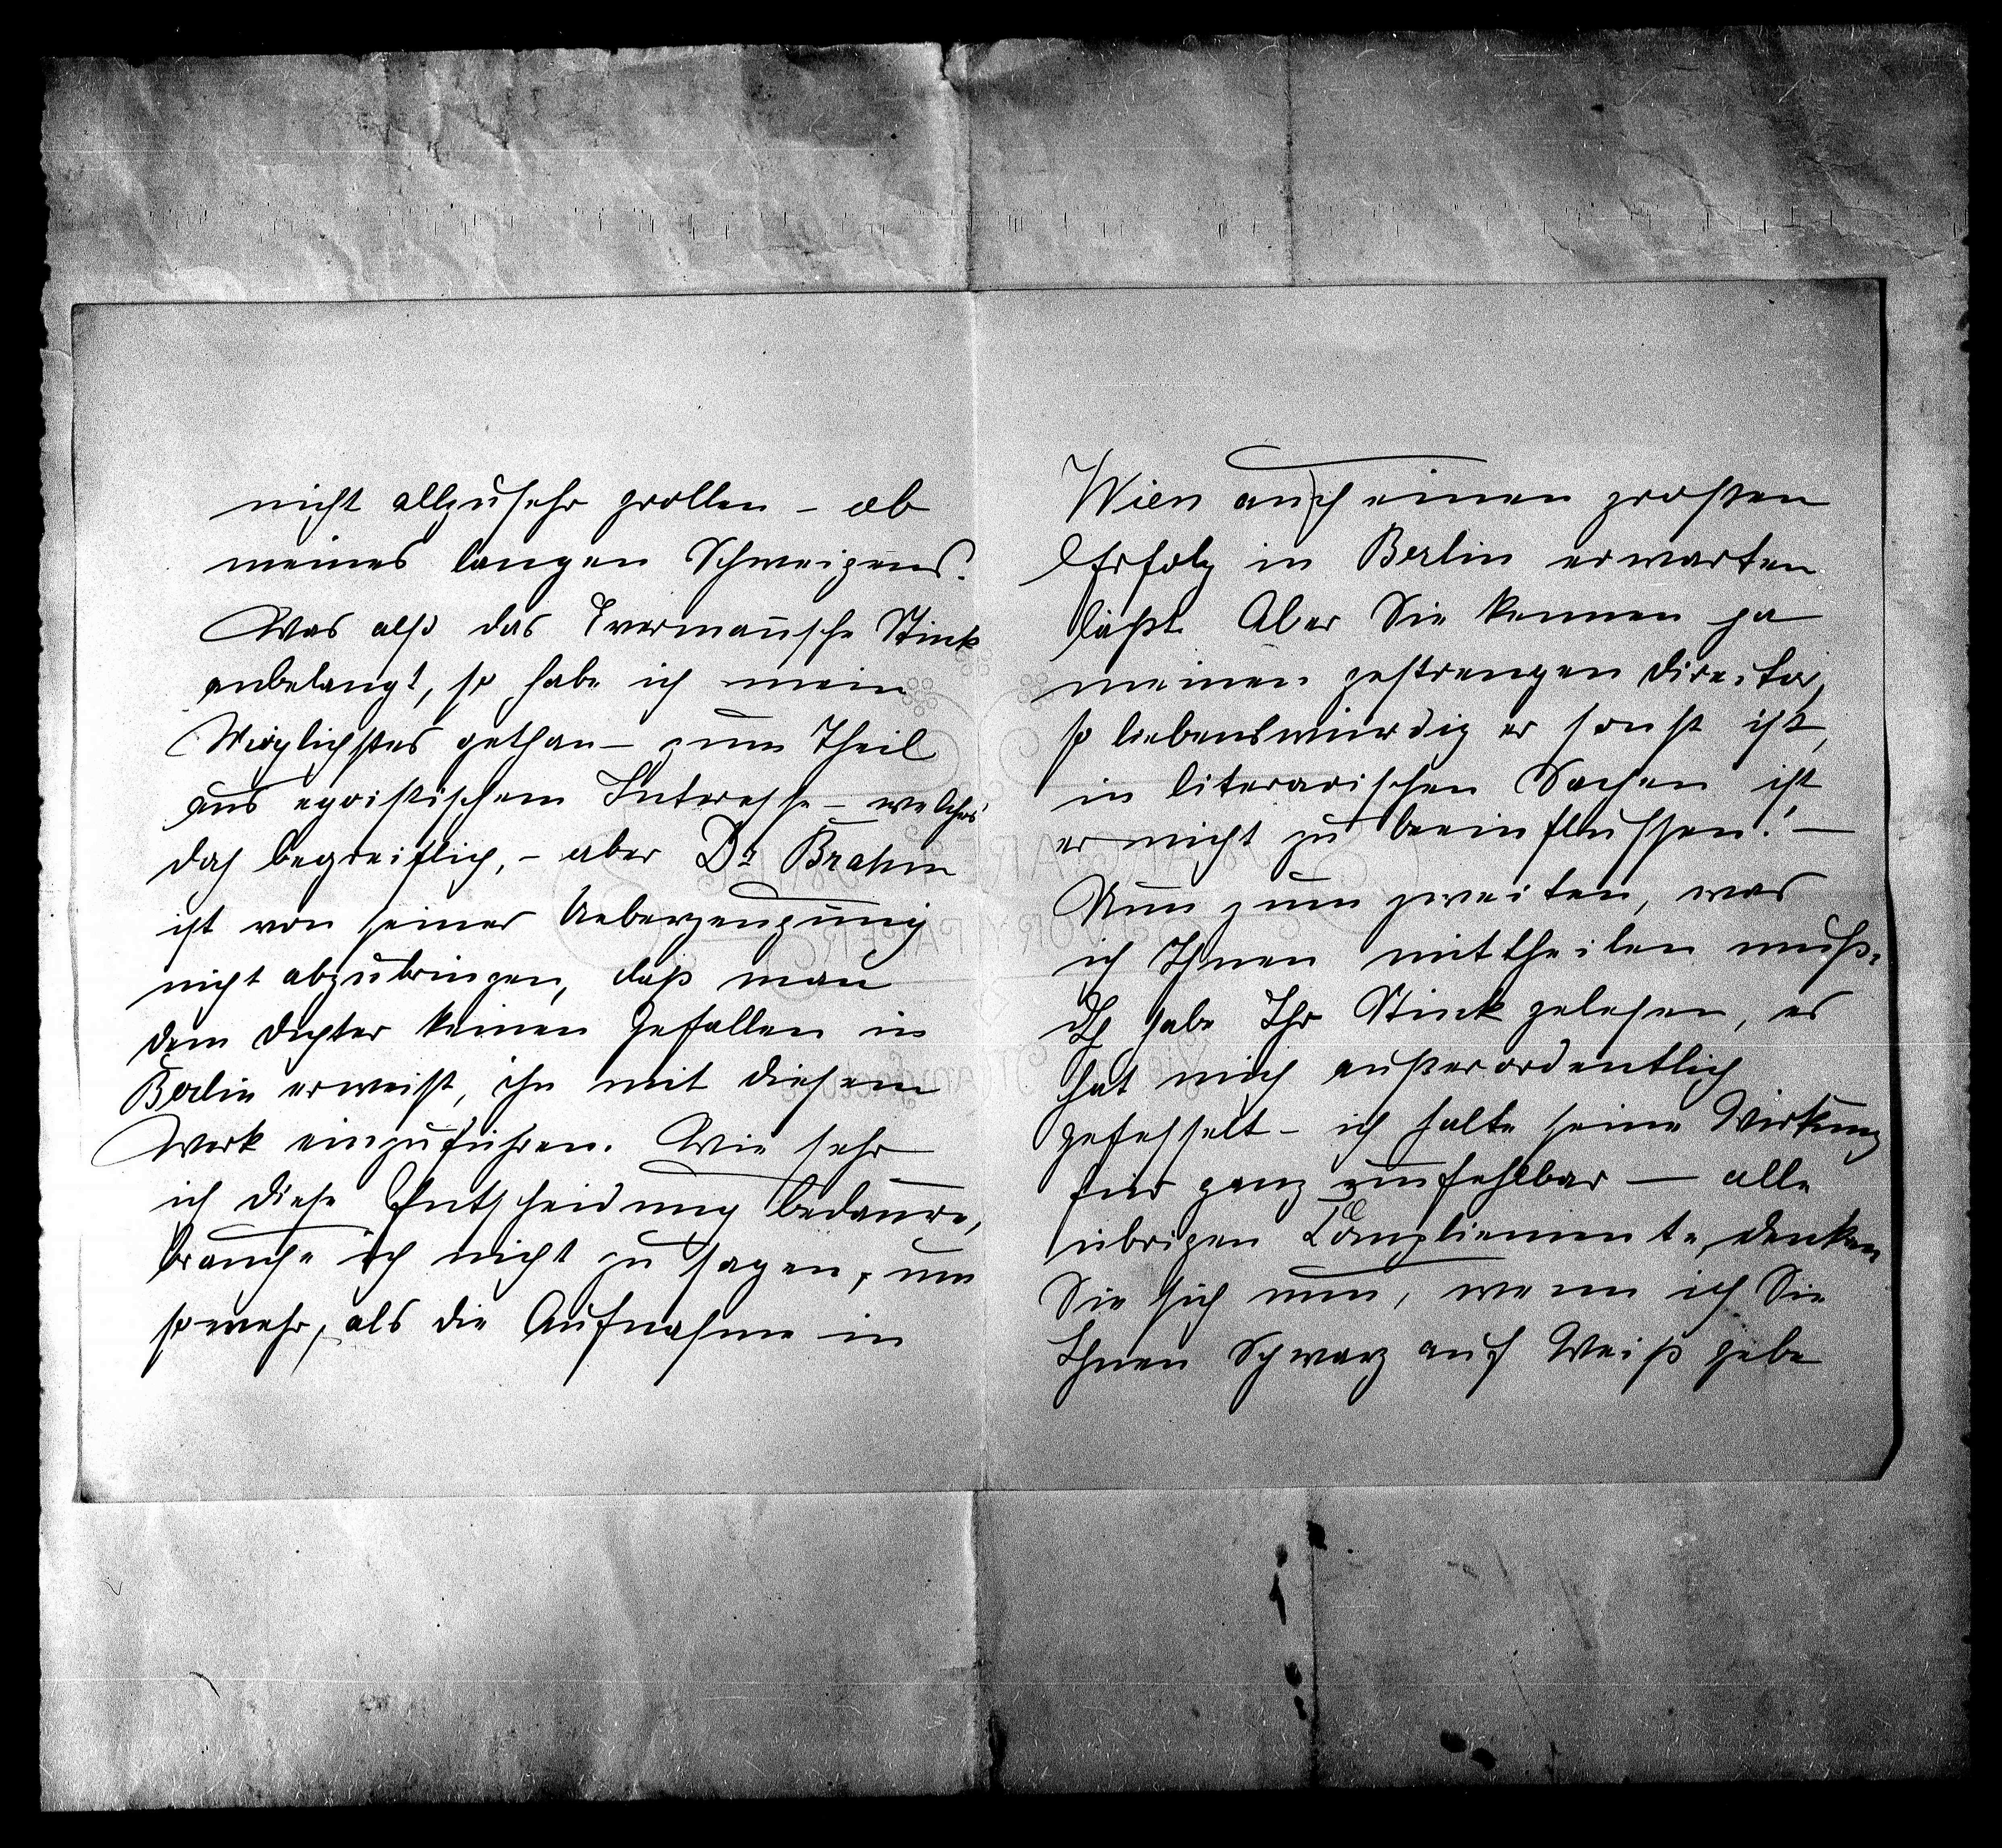 nicht allzusehr grollen – ob
meines langen Schweigens.
Was also das Evermannsche Stück
anbelangt, so habe ich mein
Möglichstes gethan – zum Theil
aus egoistischem Interesse – welches
doch begreiflich, – aber Dr Brahm
ist von seiner Ueberzeugung
nicht abzubringen, daß man
dem Dichter keinen Gefallen in
Berlin erweist, ihn mit diesem
Werk einzuführen. Wie sehr
ich diese Entscheidung bedaure,
brauche ich nicht zu sagen, um
somehr, als die Aufnahme in
Wien auch einen großen
Erfolg in Berlin erwarten
läßt. Aber Sie kennen ja
meinen gestrengen Director,
so liebenswürdig er sonst ist,
in literarischen Sachen ist
er nicht zu beeinflussen! –
Nun zum zweiten, was
ich Ihnen mittheilen muß.
Ich habe Ihr Stück gelesen, es
hat mich außerordentlich
gefesselt – ich halte seine Wirkung
für ganz unfehlbar – alle
übrigen Complimente, denken
Sie sich nun, wenn ich Sie
Ihnen Schwarz auf Weiß gebe